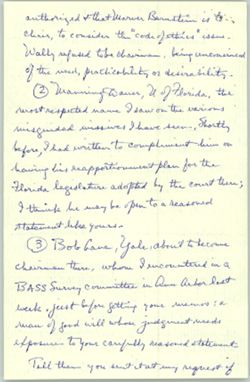 authorized & that Marver Bernstein is to
chair, to consider the "code of ethics" issue.
Wally refused to be chairman, being unconvinced
of the need, practicability or desirability.
② Manning Dauer, U of Florida, the
most respected name I saw on the various
misguided missives I have seen. Shortly
before, I had written to compliment him on
having his reapportionment plan for the
Florida legislature adopted by the court there;
I think he may be open to a reasoned
statement like yours.
③ Bob Lane, Yale, about to become
chairman there, whom I encountered in a
BASS Survey committee in Ann Arbor last
week, just before getting your memo: a
man of good will whose judgment needs
exposure to your carefully reasoned statement.
Tell them you sent it at my request if